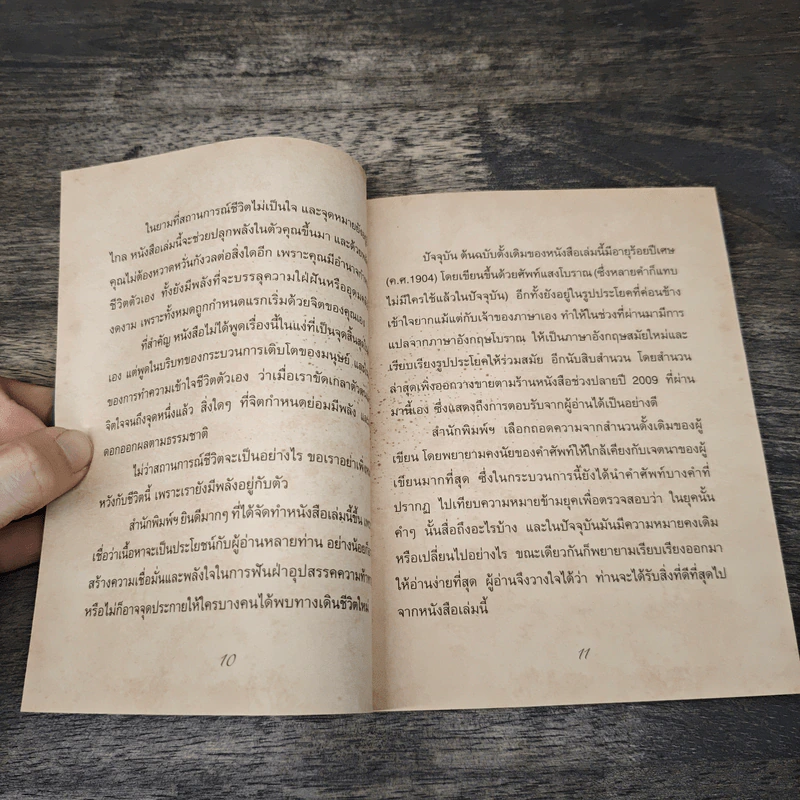 ในยามที่สถานการณ์ชีวิตไม่เป็นใจ และจุดหมายยังอยู่
ไกล หนังสือเล่มนี้จะช่วยปลุกพลังในตัวคุณขึ้นมา และด้วยพลัง
คุณไม่ต้องหวาดหวั่นกังวลต่อสิ่งใดอีก เพราะคุณมีอำนาจกำ
ชีวิตตัวเอง ทั้งยังมีพลังที่จะบรรลุความใฝ่ฝันหรืออุดมคติ
งดงาม เพราะทั้งหมดถูกกำหนดแรกเริ่มด้วยจิตของคุณเอง
ที่สำคัญ หนังสือไม่ได้พูดเรื่องนี้ในแง่ที่เป็นจุดสิ้นสุด
เอง แต่พูดในบริบทของกระบวนการเติบโตของมนุษย์ และ
ของการทำความเข้าใจชีวิตตัวเอง ว่าเมื่อเราขัดเกลาตัว
จิตใจจนถึงจุดหนึ่งแล้ว สิ่งใดๆ ที่จิตกำหนดย่อมมีพลัง และ
ดอกออกผลตามธรรมชาติ
ไม่ว่าสถานการณ์ชีวิตจะเป็นอย่างไร ขอเราอย่าเพิ่ง
หวังกับชีวิตนี้ เพราะเรายังมีพลังอยู่กับตัว
สำนักพิมพ์ฯ ยินดีมากๆ ที่ได้จัดทำหนังสือเล่มนี้ขึ้น
เชื่อว่าเนื้อหาจะเป็นประโยชน์กับผู้อ่านหลายท่าน อย่างน้อยก็
สร้างความเชื่อมั่นและพลังใจในการฟันฝ่าอุปสรรคความท้า
หรือไม่ก็อาจจุดประกายให้ใครบางคนได้พบทางเดินชีวิตใหม่
10
ปัจจุบัน ต้นฉบับดั้งเดิมของหนังสือเล่มนี้มีอายุร้อยปีเศษ
(ค.ศ.1904) โดยเขียนขึ้นด้วยศัพท์แสงโบราณ (ซึ่งหลายคำก็แทบ
ไม่มีใครใช้แล้วในปัจจุบัน) อีกทั้งยังอยู่ในรูปประโยคที่ค่อนข้าง
เข้าใจยากแม้แต่กับเจ้าของภาษาเอง ทำให้ในช่วงที่ผ่านมามีการ
แปลจากภาษาอังกฤษโบราณ ให้เป็นภาษาอังกฤษสมัยใหม่และ
เรียบเรียงรูปประโยคให้ร่วมสมัย อีกนับสิบสำนวน โดยสำนวน
ล่าสุดเพิ่งออกวางขายตามร้านหนังสือช่วงปลายปี 2009 ที่ผ่าน
มานี้เอง ซึ่งแสดงถึงการตอบรับจากผู้อ่านได้เป็นอย่างดี
สำนักพิมพ์ฯ เลือกถอดความจากสำนวนดั้งเดิมของผู้
เขียน โดยพยายามคงนัยของคำศัพท์ให้ใกล้เคียงกับเจตนาของผู้
เขียนมากที่สุด ซึ่งในกระบวนการนี้ยังได้นำคำศัพท์บางคำที่
ปรากฏ ไปเทียบความหมายข้ามยุคเพื่อตรวจสอบว่า ในยุคนั้น
คำๆ นั้นสื่อถึงอะไรบ้าง และในปัจจุบันมันมีความหมายคงเดิม
หรือเปลี่ยนไปอย่างไร ขณะเดียวกันก็พยายามเรียบเรียงออกมา
ให้อ่านง่ายที่สุด ผู้อ่านจึงวางใจได้ว่า ท่านจะได้รับสิ่งที่ดีที่สุดไป
จากหนังสือเล่มนี้
11